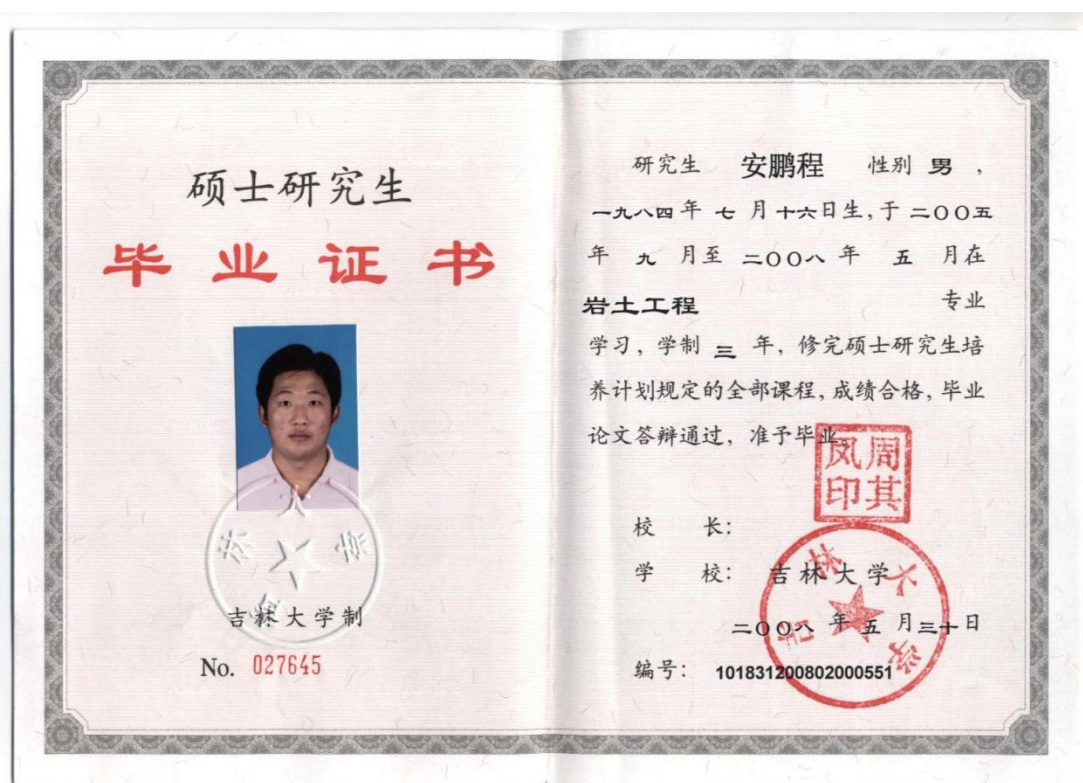 硕士研究生
毕业证书
吉林大学
吉林大学制
No. 027645
研究生 安鹏程 性别 男 ,
一九八四年 七 月十六日生,于 二〇〇五
年 九 月至 二〇〇八 年 五 月在
岩土工程 专业
学习, 学制 三 年, 修完硕士研究生培
养计划规定的全部课程, 成绩合格, 毕业
论文答辩通过, 准予毕业。
周其凤印
校 长:
学 校: 吉林大学
吉林大学
二〇〇八 年 五 月三十日
编号: 101831200802000551